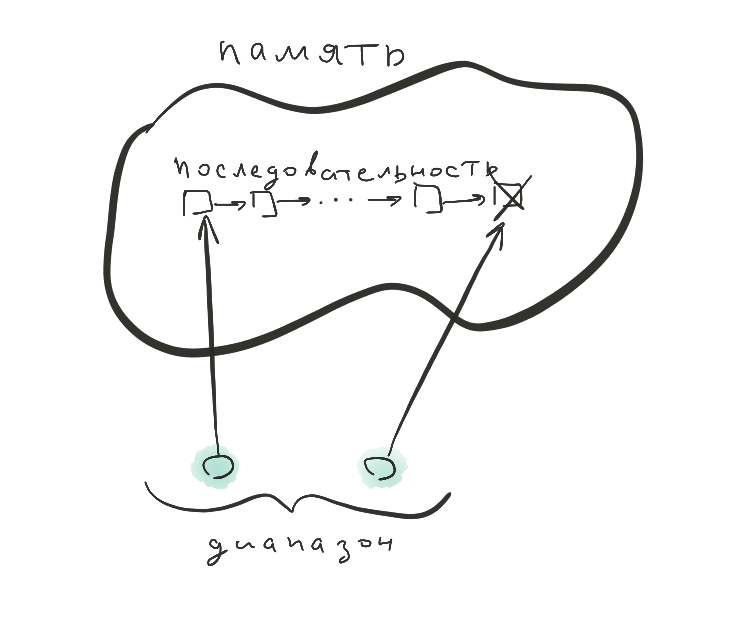 память
последовательность
...
диапазон